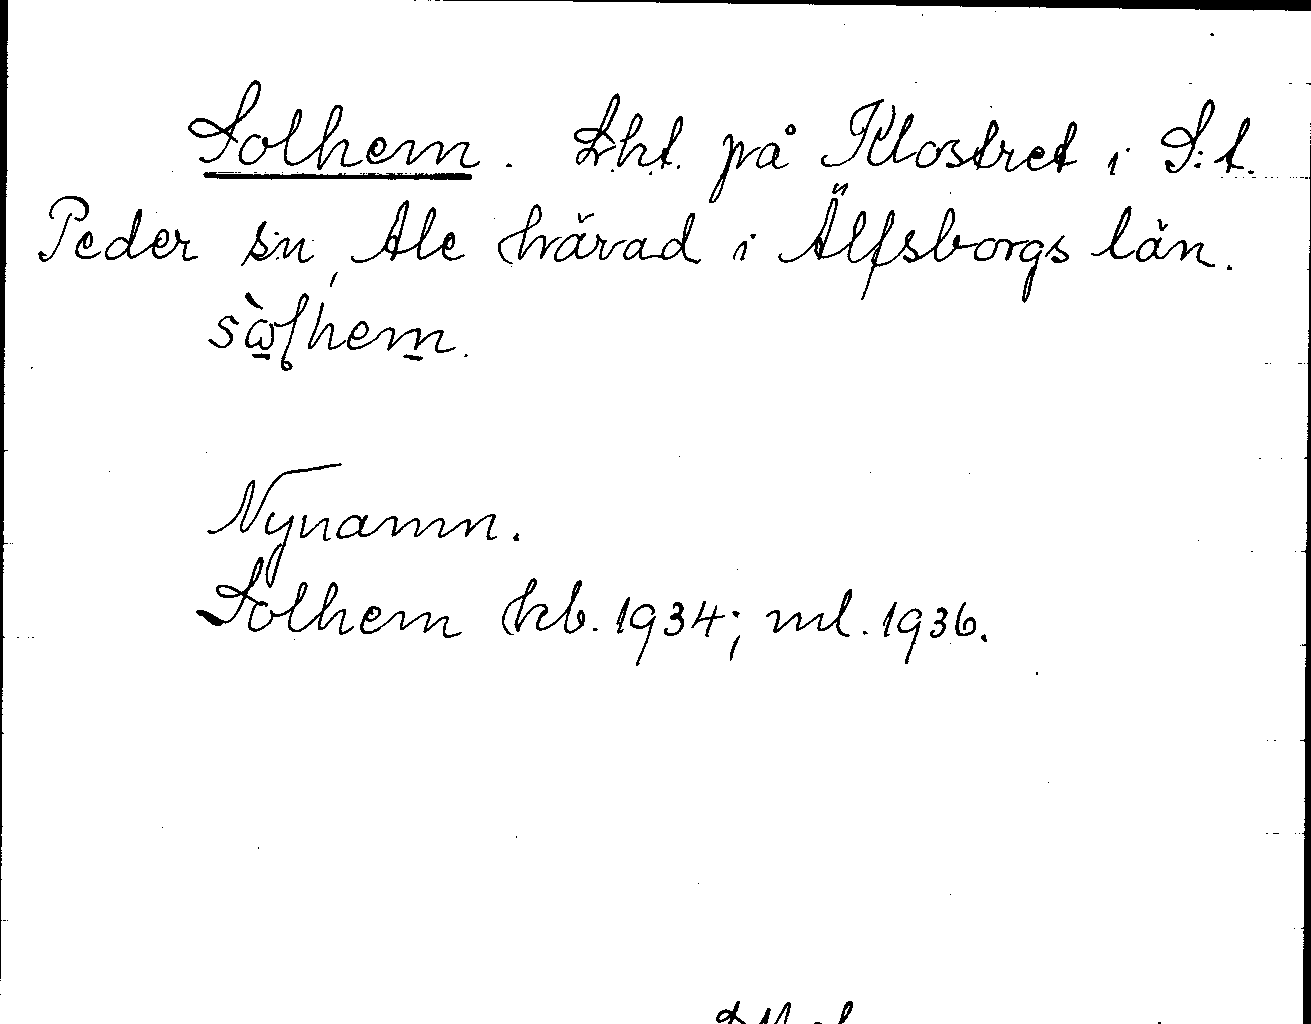 Solhem. Lht. på Klostret i S:t.
Peder sn, Ale härad i Älfsborgs län.
sὼlhem.
Nynamn.
Solhem kb. 1934; ml. 1936.